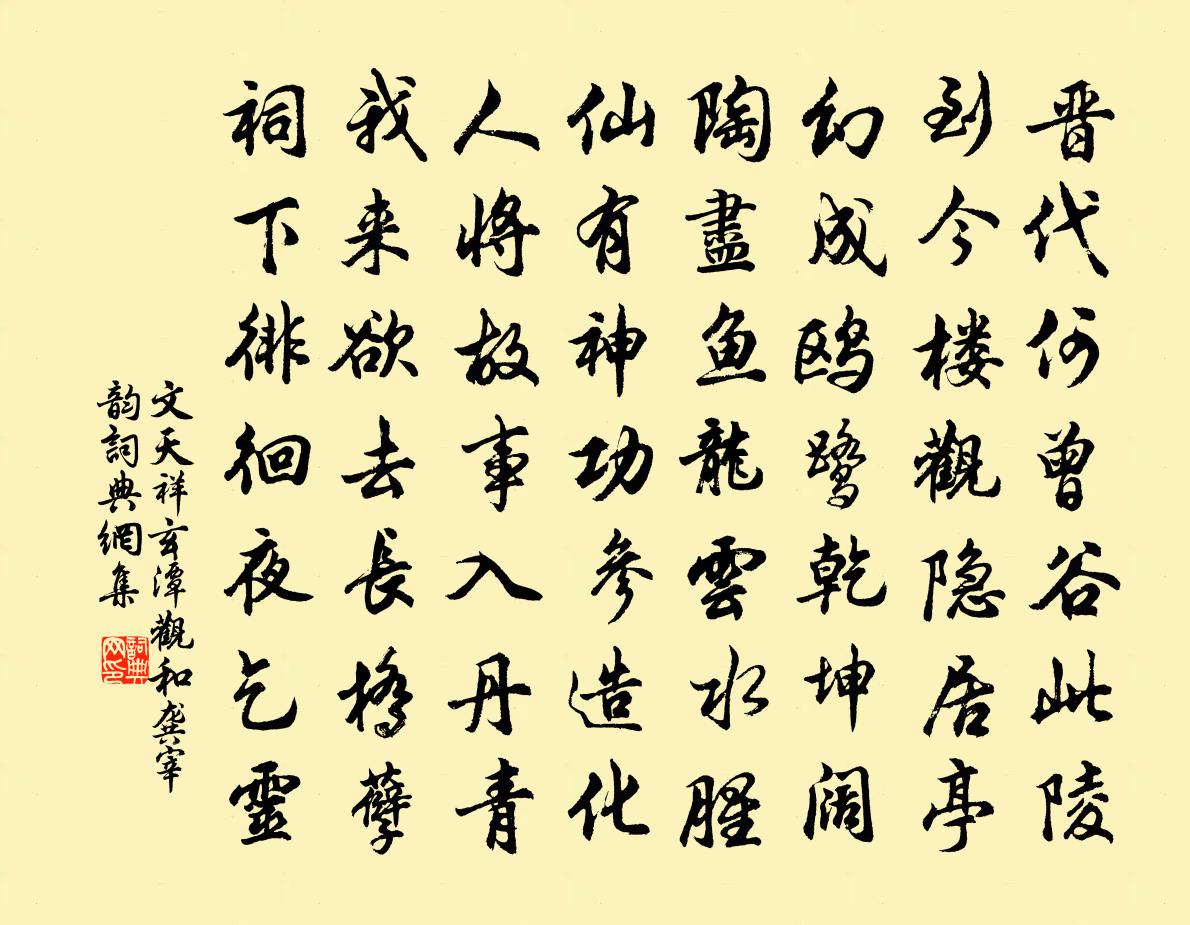 晋代何曾谷此陵
到今楼觀隐居亭
幻成鸥鹭乾坤阔
陶盡鱼龍雲水腥
仙有神功參造化
人將故事入丹青
我来欲去長橋孽
祠下徘徊夜乞靈
文天祥玄潭觀和龚宰
韵詞典網集
詞典网印